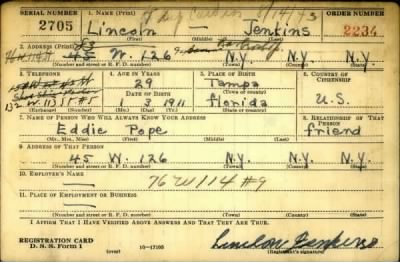 SERIAL NUMBER 1. NAME (Print) ORDER NUMBER
2705 Lincoln — Jenkins 2234
(First) (Middle) (Last)
2. ADDRESS (Print)
45 W. 126 N.Y. N.Y.
(Number and street or R. F. D. number) (Town) (County) (State)
3. TELEPHONE 4. AGE IN YEARS 5. PLACE OF BIRTH 6. COUNTRY OF CITIZENSHIP
29 Tampa
DATE OF BIRTH (Town or county)
132 W. 113 St #5 1 3 1911 Florida U.S.
(Exchange) (Number) (Mo.) (Day) (Yr.) (State or country)
7. NAME OF PERSON WHO WILL ALWAYS KNOW YOUR ADDRESS 8. RELATIONSHIP OF THAT PERSON
Eddie Pope friend
(Mr., Mrs., Miss) (First) (Middle) (Last)
9. ADDRESS OF THAT PERSON
45 W. 126 N.Y. N.Y.
(Number and street or R. F. D. number) (Town) (County) (State)
10. EMPLOYER'S NAME
— 76 W 114 #9
11. PLACE OF EMPLOYMENT OR BUSINESS
—
(Number and street or R. F. D. number) (Town) (County) (State)
I AFFIRM THAT I HAVE VERIFIED ABOVE ANSWERS AND THAT THEY ARE TRUE.
REGISTRATION CARD Lincoln Jenkins
D. S. S. Form 1 (over) 16—17105 (Registrant's signature)